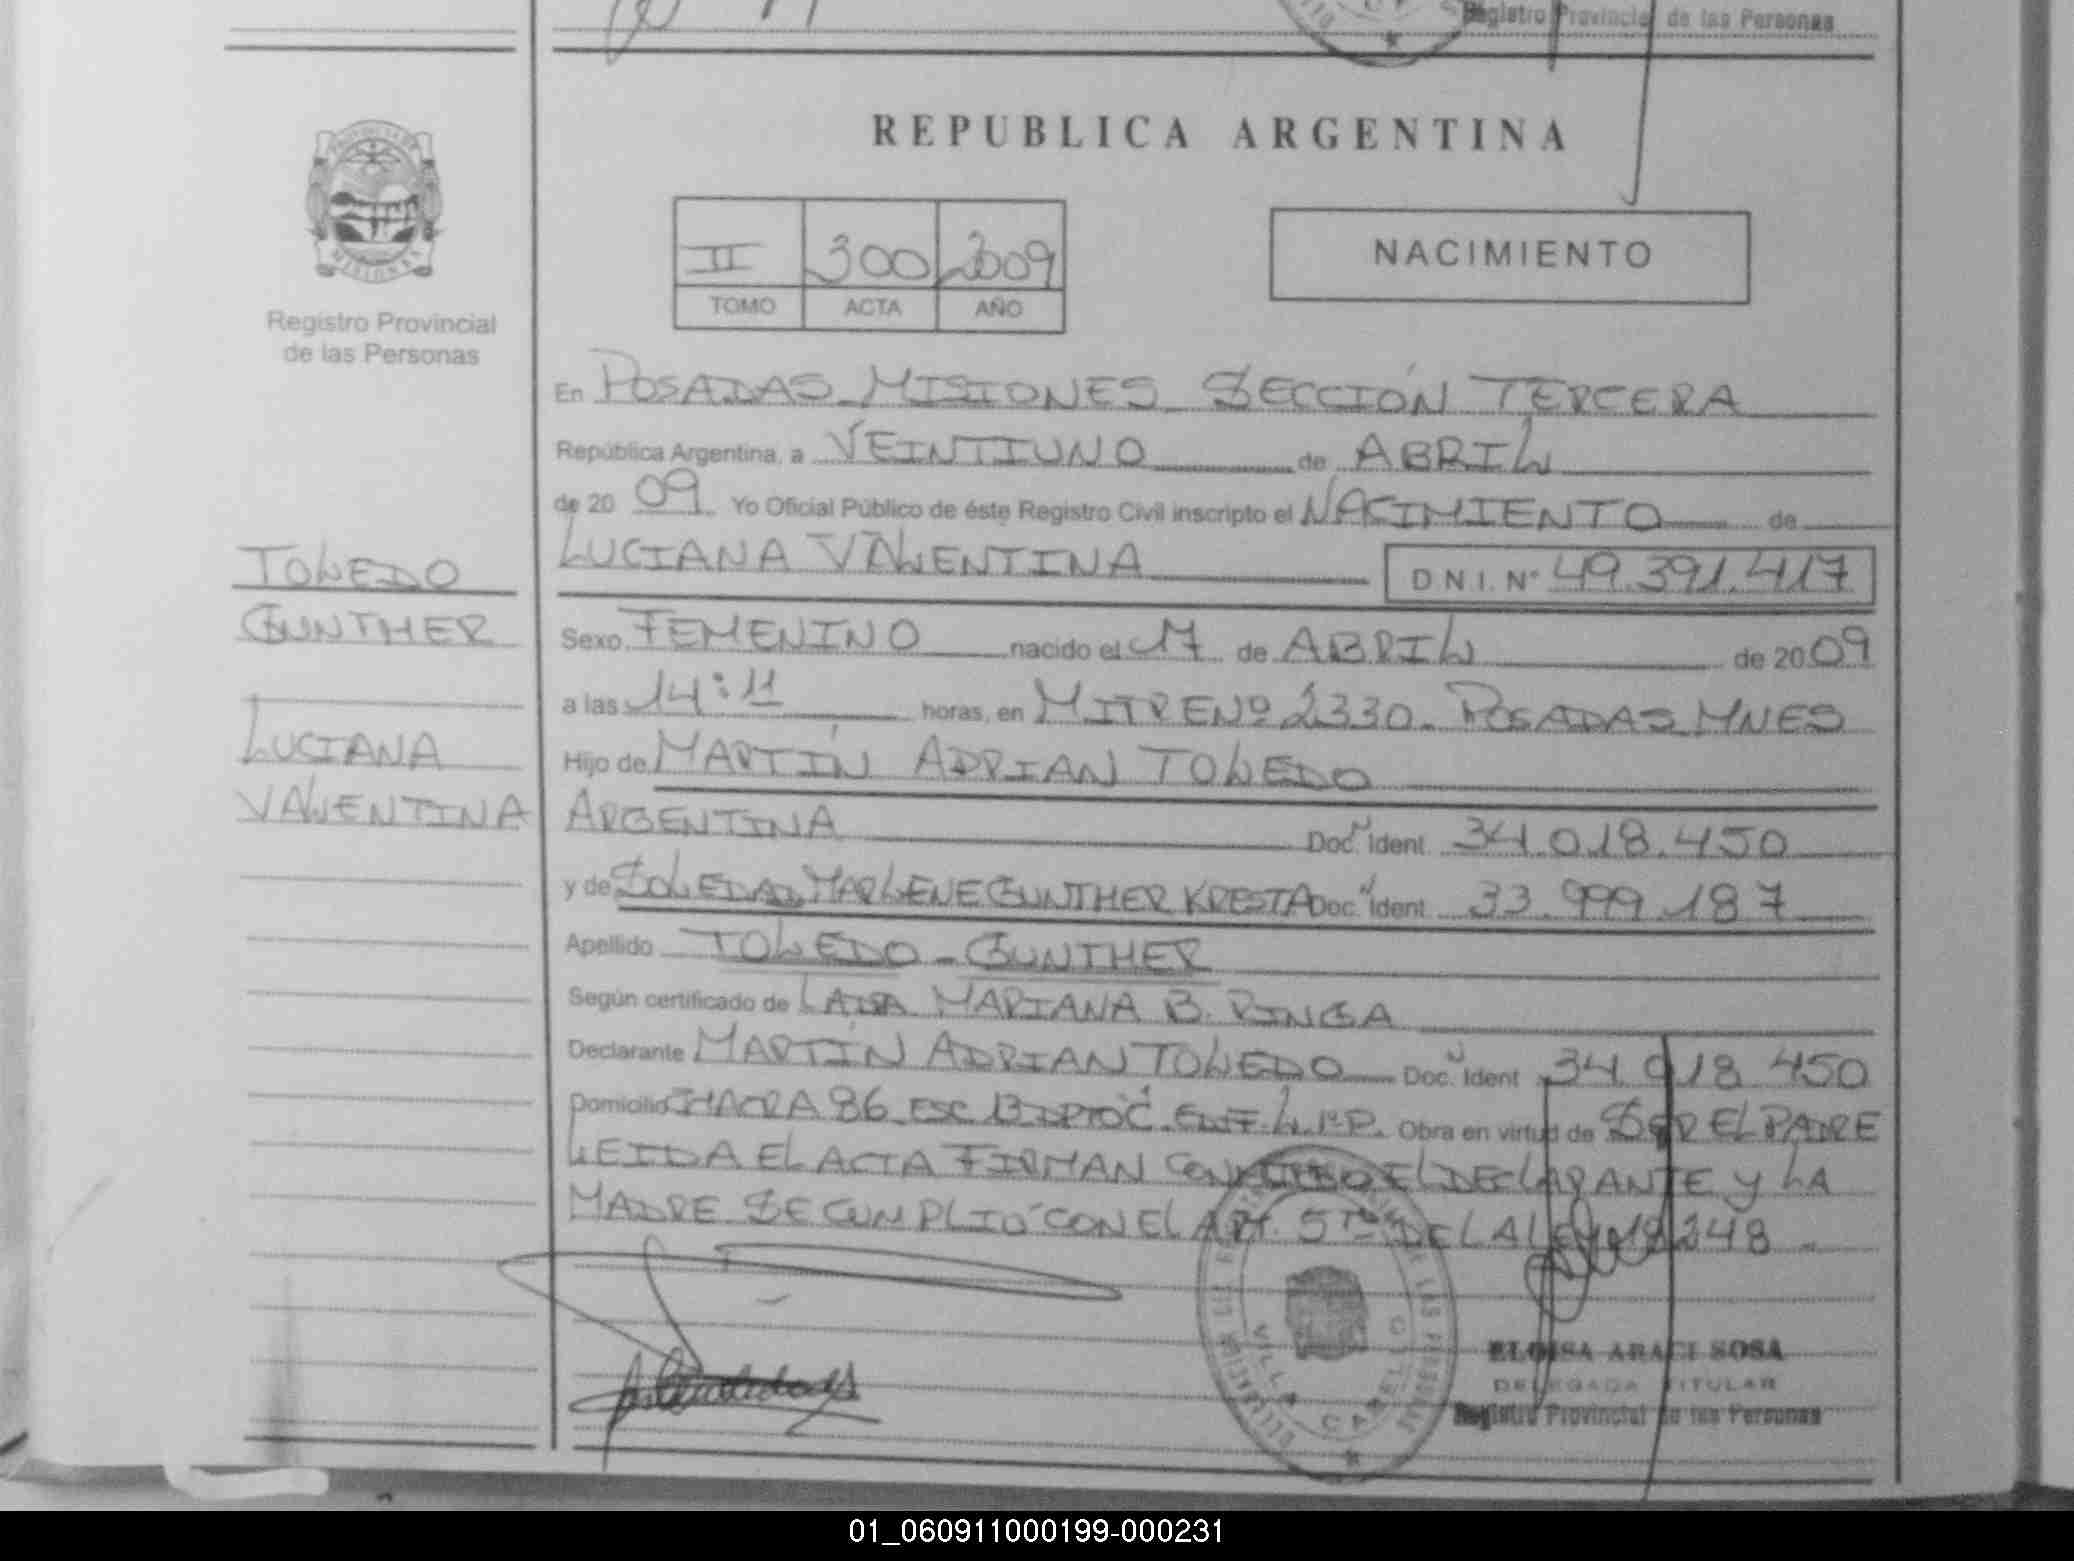 Registro Provincial de las Personas
REPUBLICA ARGENTINA
PROVINCIA DE
MISIONES
Registro Provincial
de las Personas
II 300 2009
TOMO ACTA AÑO
NACIMIENTO
En POSADAS MISIONES SECCIÓN TERCERA
República Argentina, a VEINTIUNO de ABRIL
de 20 09 Yo Oficial Público de éste Registro Civil inscripto el NACIMIENTO de
LUCIANA VALENTINA D.N.I. Nº 49.391.417
TOLEDO
GUNTHER
LUCIANA
VALENTINA
Sexo FEMENINO nacido el 17 de ABRIL de 20 09
a las 14:11 horas, en MITRE Nº 2330. POSADAS MNES
Hijo de MARTÍN ADRIAN TOLEDO
ARGENTINA Doc. Ident 34.018.450
y de SOLEDAD MARLENE GUNTHER KRESTA Doc. Ident 33.999.187
Apellido TOLEDO - GUNTHER
Según certificado de MARIANA B. RINGA
Declarante MARTÍN ADRIAN TOLEDO Doc. Ident 34.018.450
Domicilio 86 ESC 13 Obra en virtud de SER EL PADRE
LEIDA EL ACTA FIRMAN CONMIGO EL DECLARANTE Y LA
MADRE SE CUMPLIÓ CON EL ART. 5to DE LA LEY 18248
VILLA CABELLO
ELOISA ARACI SOSA
DELEGADA TITULAR
Registro Provincial de las Personas
01_060911000199-000231